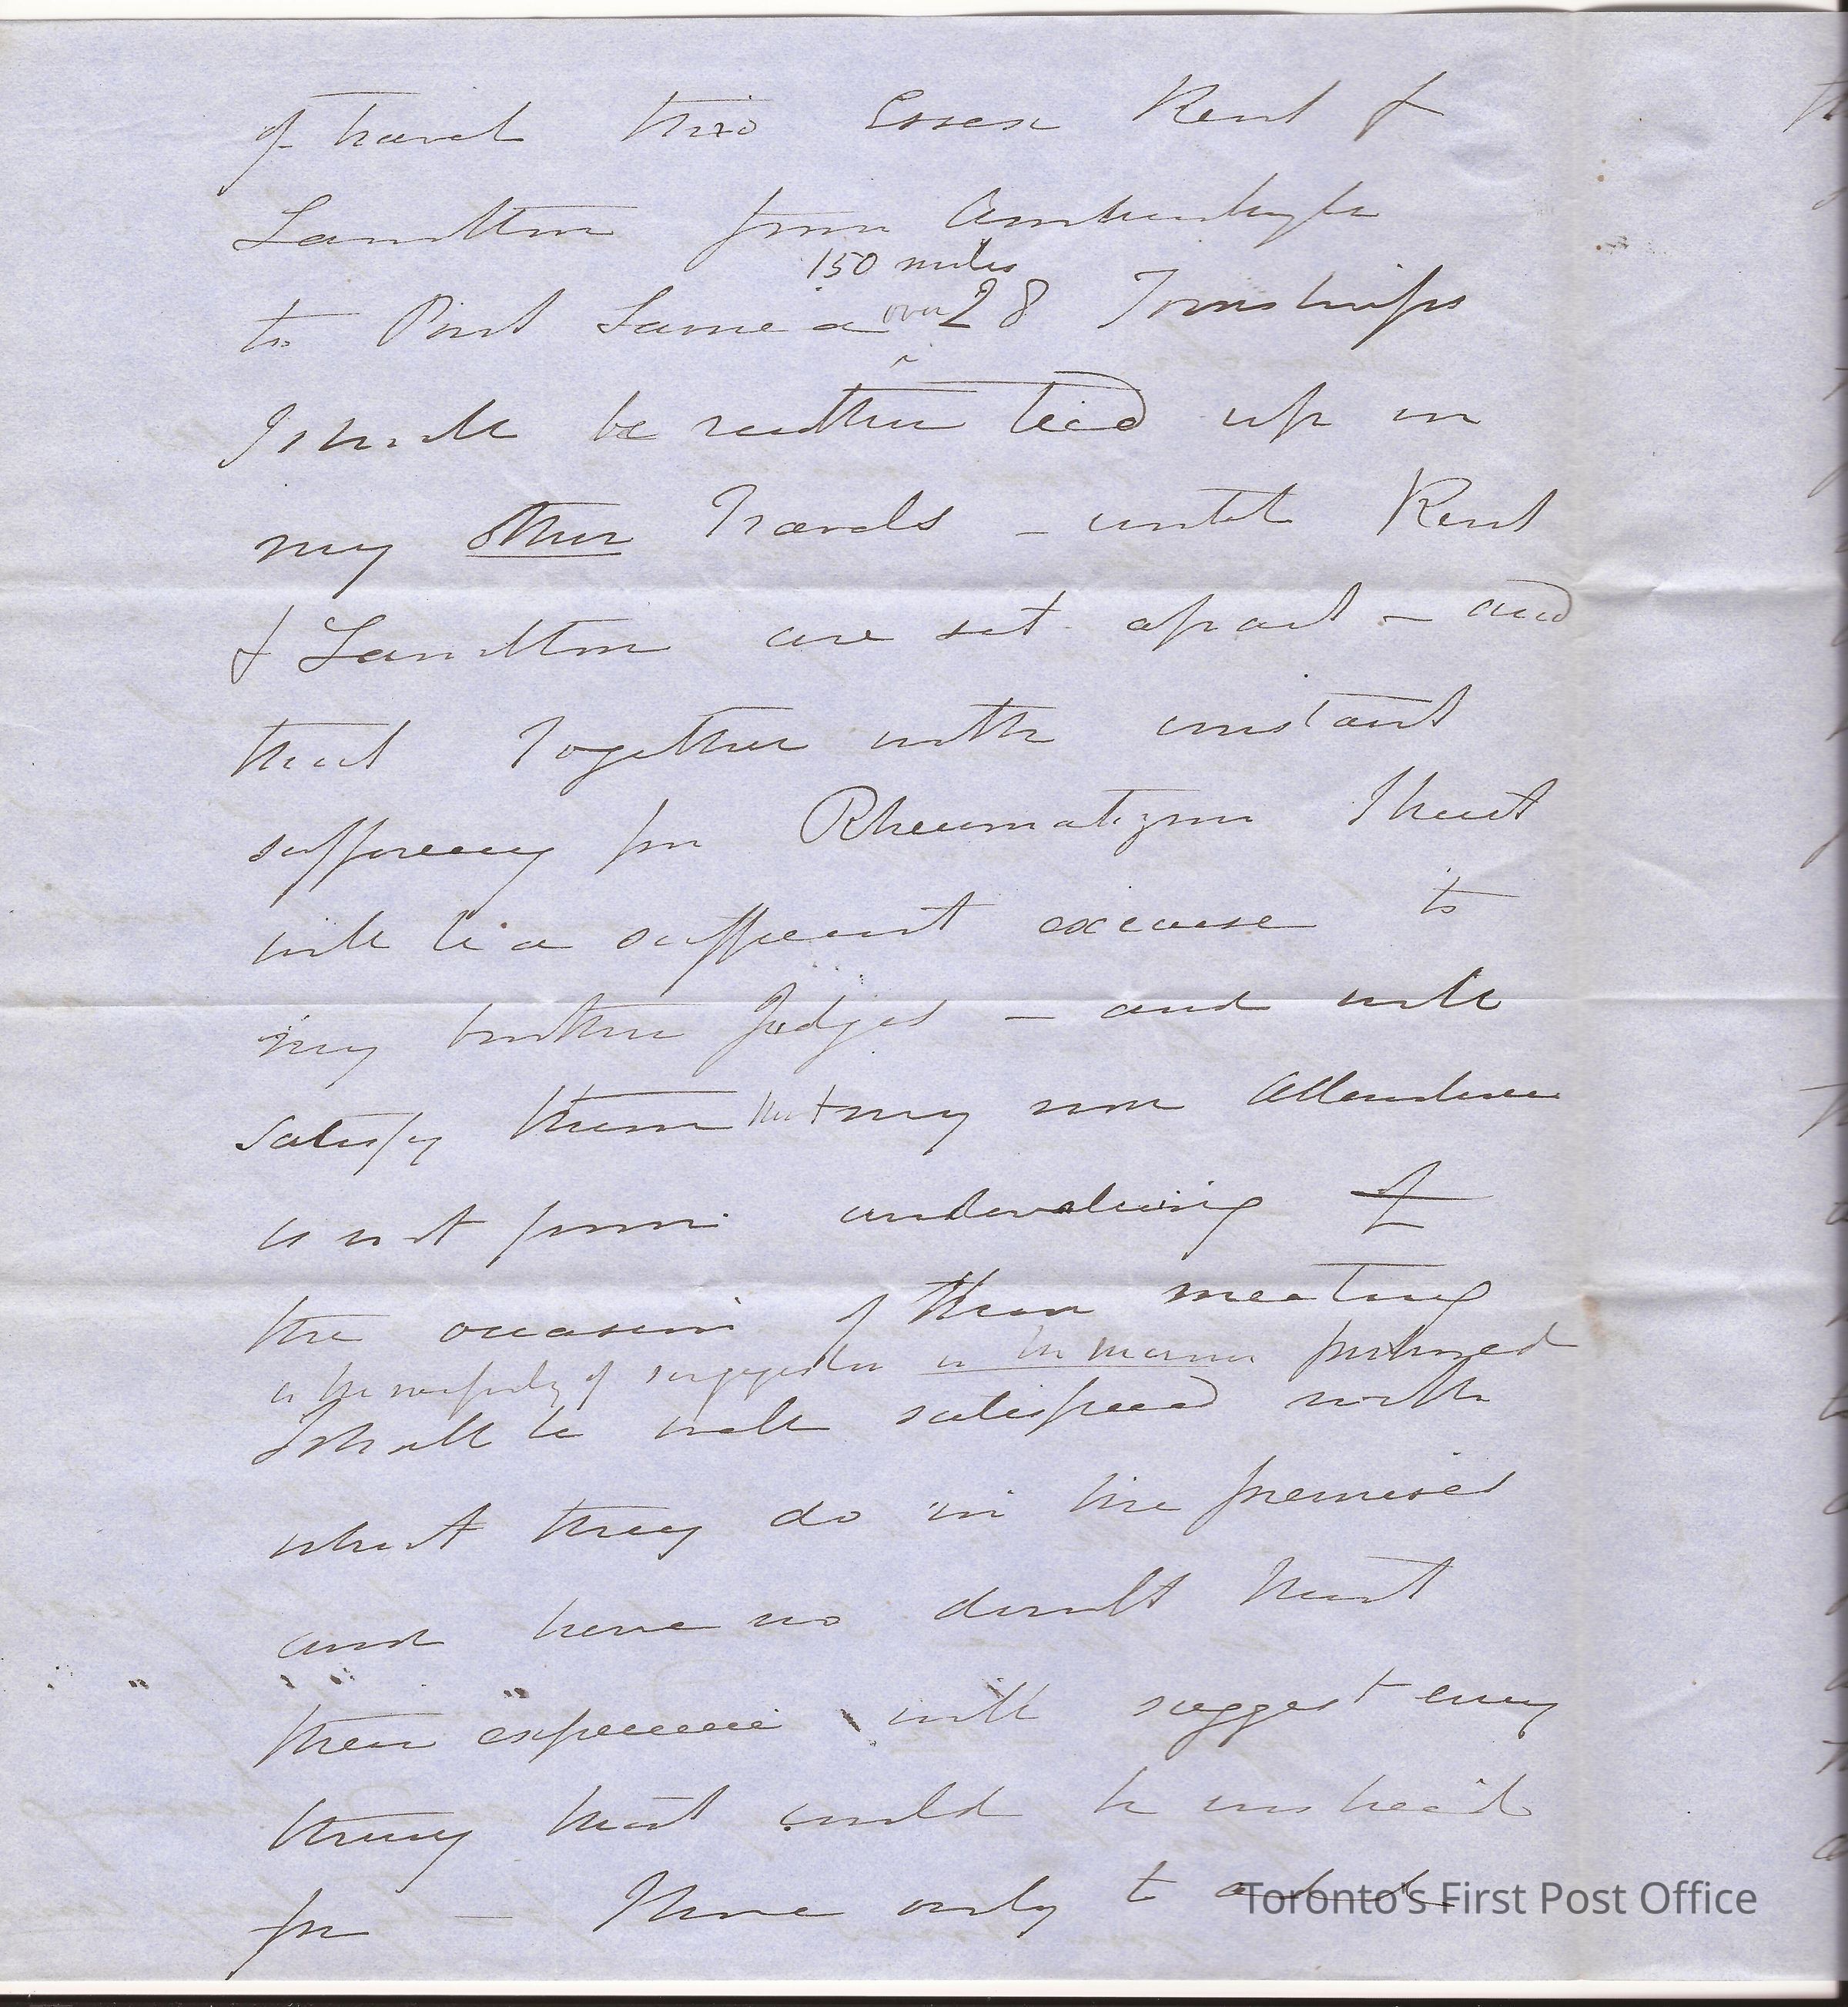 of travel thro Essex Kent &
Lambton from Amherstburgh
150 miles
to Port Sarnia over 28 Townships
I shall be rather tied up in
my other Travels – until Kent
& Lambton are set apart – and
that Together with constant
suffering for Rheumatizm I trust
will be a sufficient excuse to
my brother Judges – and will
satisfy them that my non attendance
is not from undervaluing of
the occasion of their meeting
or the necessity of suggestion in the manner proposed
I shall be well satisfied with
what they do in the premises
and have no doubt that
their experience will suggest every
thing that could be wished
for – I have only to
Toronto's First Post Office